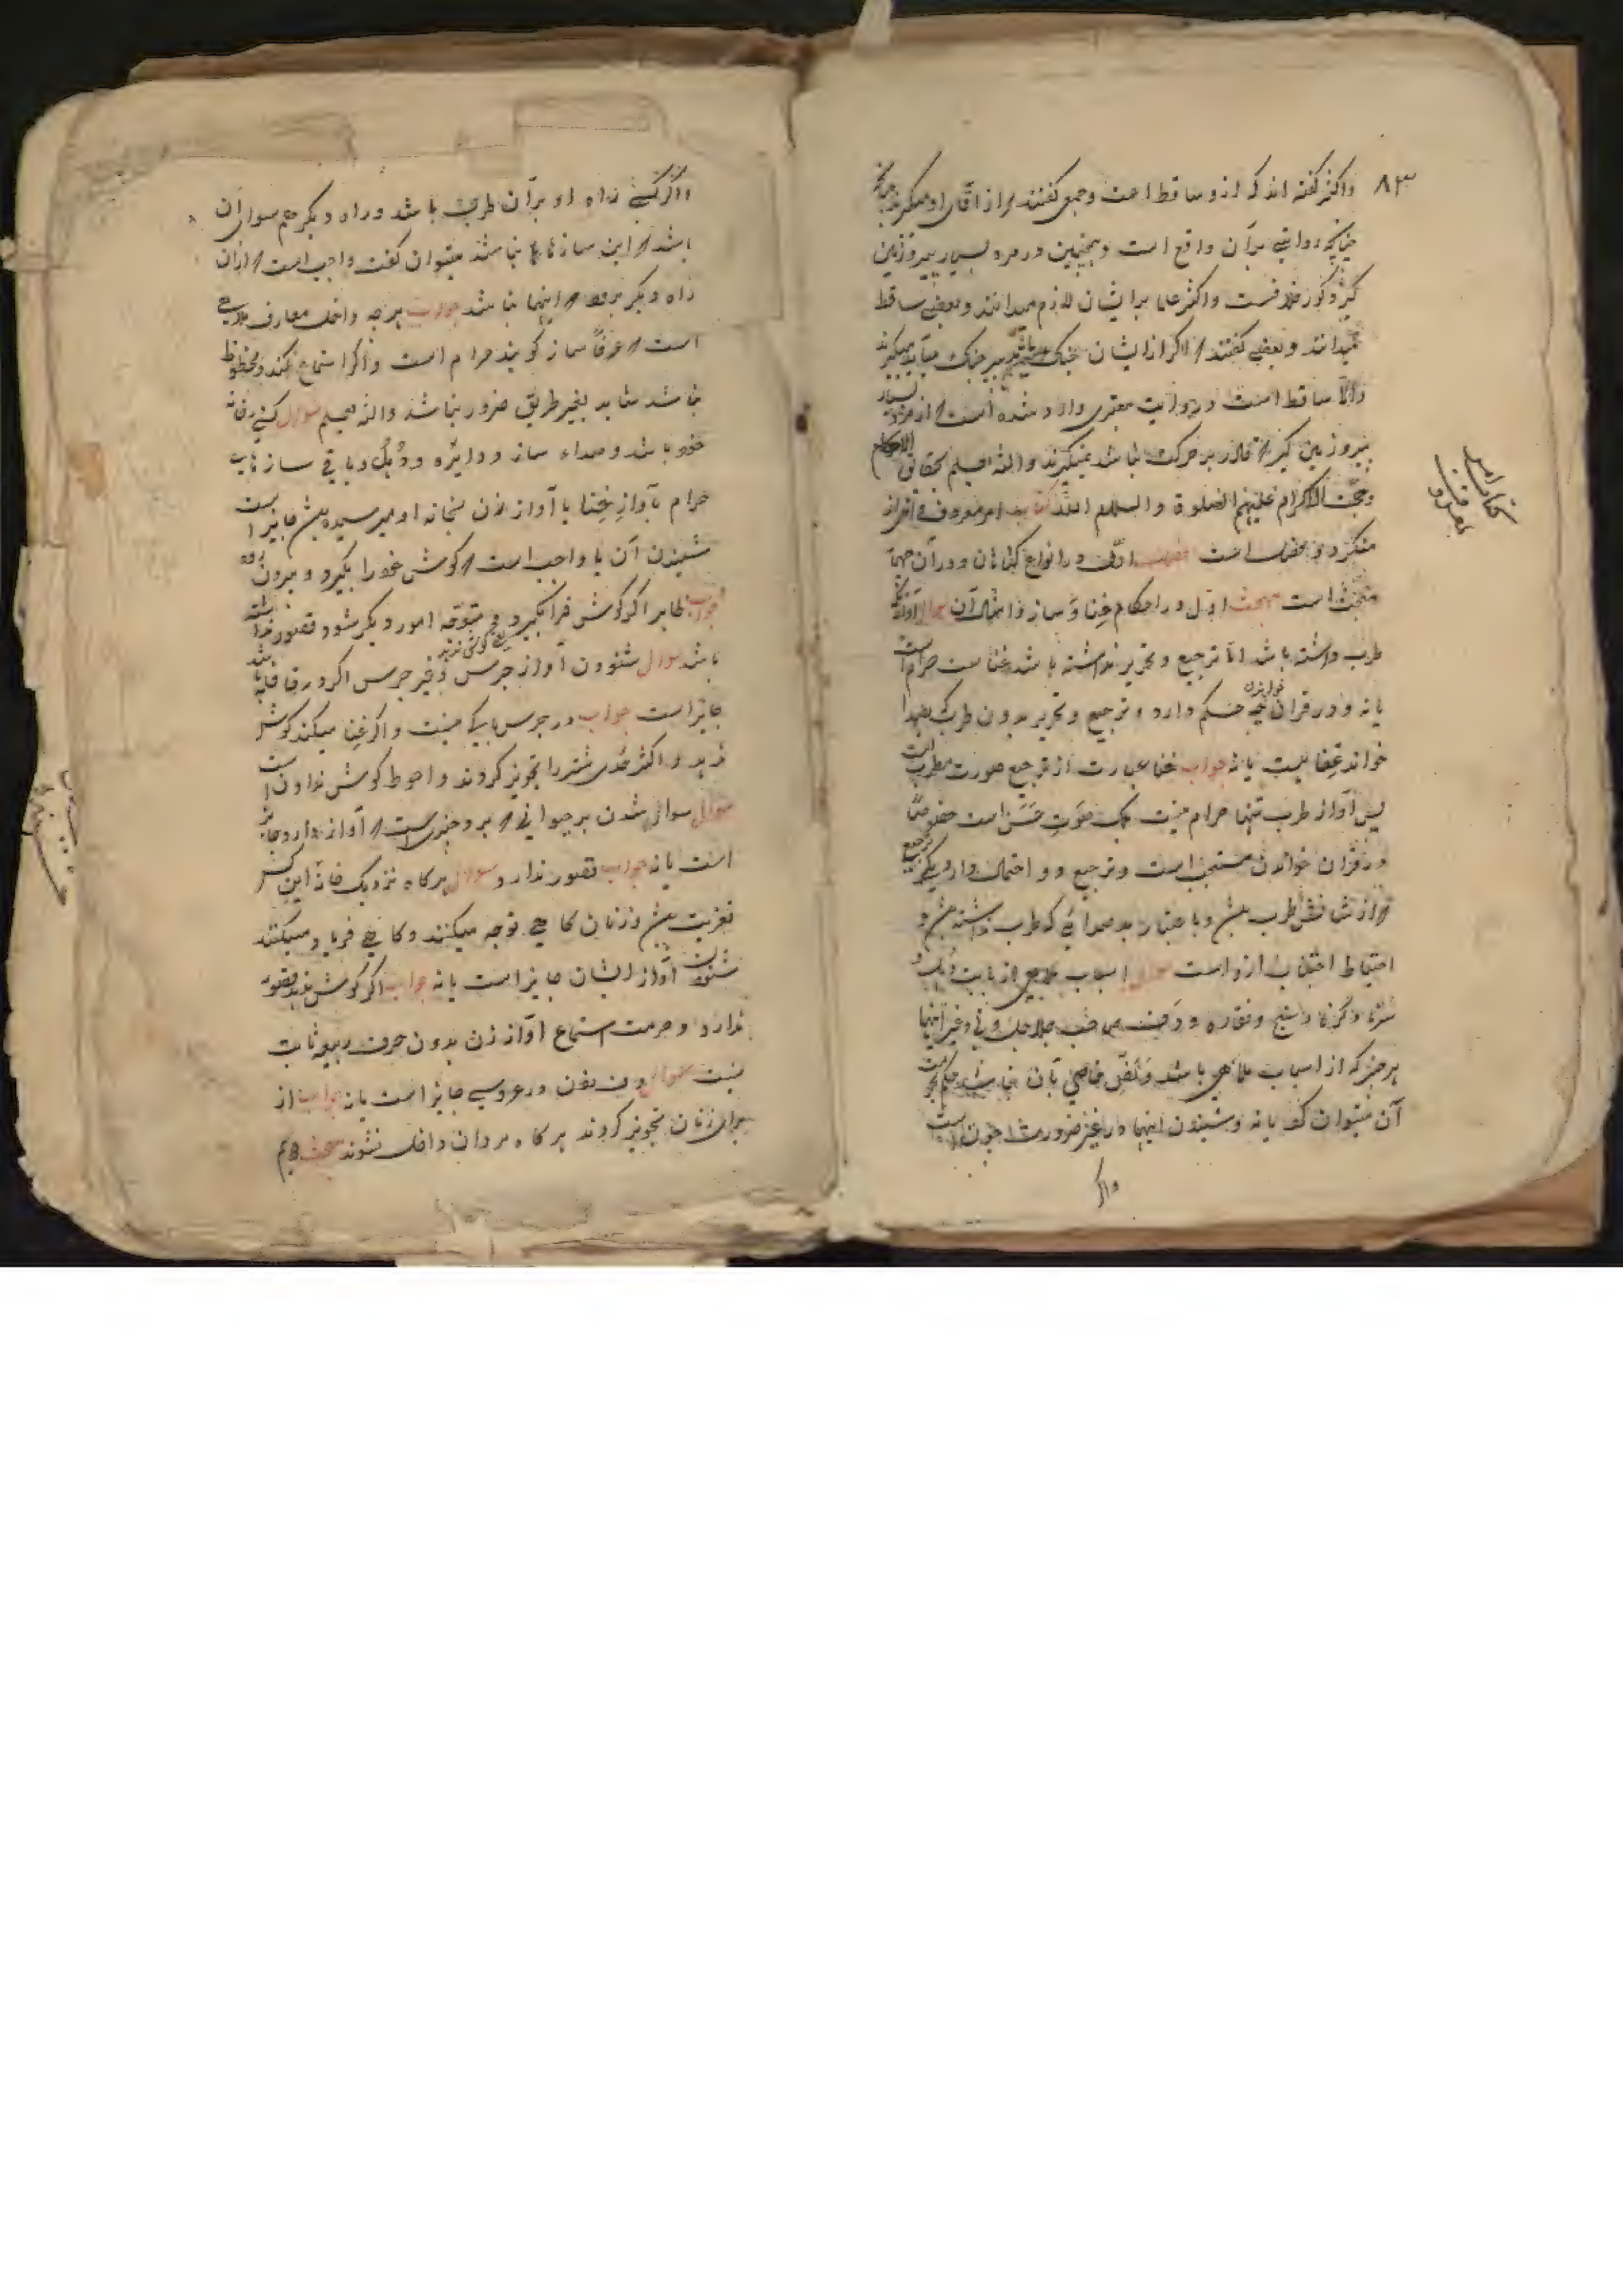 ۸۳
واکثر گفته اند که ازو ساقط است وجمعی گفتند که از آقای او میگیرند
چنانچه روایتی برآن واقع است وهمچنین در مرد بسیار پیر وزمین
گیر و کور خلافست واکثر علما برایشان لازم میدانند وبعضی ساقط
میدانند وبعضی گفتند که اگر از ایشان جنک
والا ساقط است و روایت معتبری وارد شده است که از مرد
پیر وزمین گیر که قادر بر حرکت نباشد نمیگیرند والله یعلم بحقایق الاحکام
وحججه الکرام علیهم الصلوة والسلام کتاب امر معروف ونهی از
منکر و دو فصل است فصل اول در انواع گناهان ودرآن
مبحث است مبحث اول در احکام غنا و ساز و امثال آن سوال آواز که
طرب داشته باشد اما ترجیع وتحریر نداشته باشد غنا است حرام است
یا نه ودر قرآن خواندن چه حکم دارد و ترجیع وتحریر بدون طرب
خواند غنا هست یا نه جواب غنا عبارت از ترجیع صوت مطرب است
پس آواز طرب تنها حرام نیست بلکه صوت حسن است خصوصاً
در قرآن خواندن مستحب است وترجیع دو احتمال دارد یکی ترجیع
که از شانش طرب بیش و باعتبار بد صدائی که طرب نداشته بیش و
احتیاط اجتناب ازو است سوال اسباب ملاهی از بابت دهل و
سرنا وکرنا وسنج ونقاره و دف صاحب جلاجل ونی وغیر اینها
هر چیز که از اسباب ملاهی باشد ونص خاصی بآن نباشد حکم بحرمت
آن میتوان کرد یا نه وشنیدن اینها در غیر ضرورت چون است
واکر
کتاب امر
بمعروف
واگر کسی راه او برآن طریق باشد وراه دیگر هم سوای آن
باشد که این سازها نباشد میتوان گفت واجب است که ازان
راه دیگر برود که اینها نباشد جواب هرچه داخل معارف ملاهی
است که عرفاً ساز گویند حرام است واگر استماع نکند ومحظوظ
نباشد شاید بغیر طریق ضرور نباشد والله یعلم سوال کسی در خانه
خود باشد وصداء ساز و دایره ودهل وباقی سازهای
حرام یا آواز غنا یا آواز زن بخانه او میرسیده بیش جایز است
شنیدن آن یا واجب است که گوش خود را بگیرد وبیرون رود
جواب ظاهرا اگر گوش فرا نگیرد و متوجه امور دیگر شود قصور نداشته
یعنی گوش ندهد
باشد سوال شنودن آواز جرس وغیر جرس اگر در قافله باشد
جایز است جواب در جرس باکی نیست واگر غنا میکند گوش
ندهد و اکثر حدی شتر را تجویز کردند واحوط گوش ندادن است
سوال سوار شدن بر حیوانی که برو چیزی است که آواز دارد جایز
است یا نه جواب قصور ندارد سوال هرگاه نزدیک خانه این کس
تعزیت بیش وزنان گاهی نوحه میکنند وگاهی فریاد میکنند
شنودن آواز ایشان جایز است یا نه جواب اگر گوش ندهد قصور
ندارد وحرمت استماع آواز زن بدون حرف ریبه ثابت
نیست سوال دف زدن در عروسی جایز است یا نه جواب از
برای زنان تجویز کردند هرگاه مردان داخل نشوند مبحث دویم